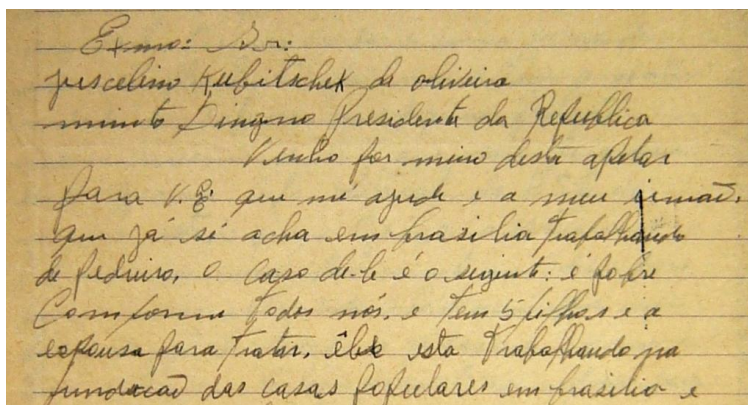 Exmo: Snr:
juscelino Kubitschek de oliveira
minito Dingno Presidente da Republica
Venho por meio desta apelar
para V.E: que me ajude e a meu irmaõ,
que já sé acha em brasilia trabalhando
de pedreiro, o caso dele é o seginte: é pobre
Comforme todos nós, e tem 5 filhos e a
esposa para tratar, êle esta trabalhando na
fundacaõ das casas populares em brasilia e